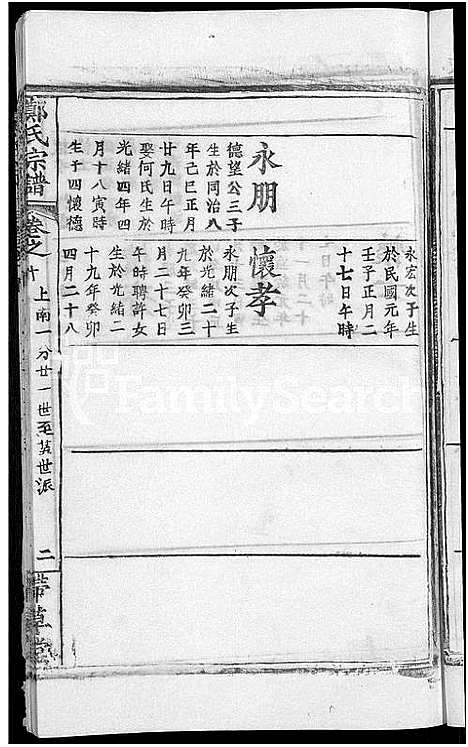 永朋
德望公三子
生於同治八
年己巳正月
廿九日午時
娶何氏生於
光緒四年四
月十八寅時
生子四懷德
永宏次子生
於民國元年
壬子正月二
十七日午時
懷孝
永朋次子生
於光緒二十
九年癸卯三
月二十七日
午時聘許女
生於光緒二
十九年癸卯
四月二十八
鄭氏宗譜
卷之十
上南一分廿一世至廿世派
二
帶草堂
FamilySearch